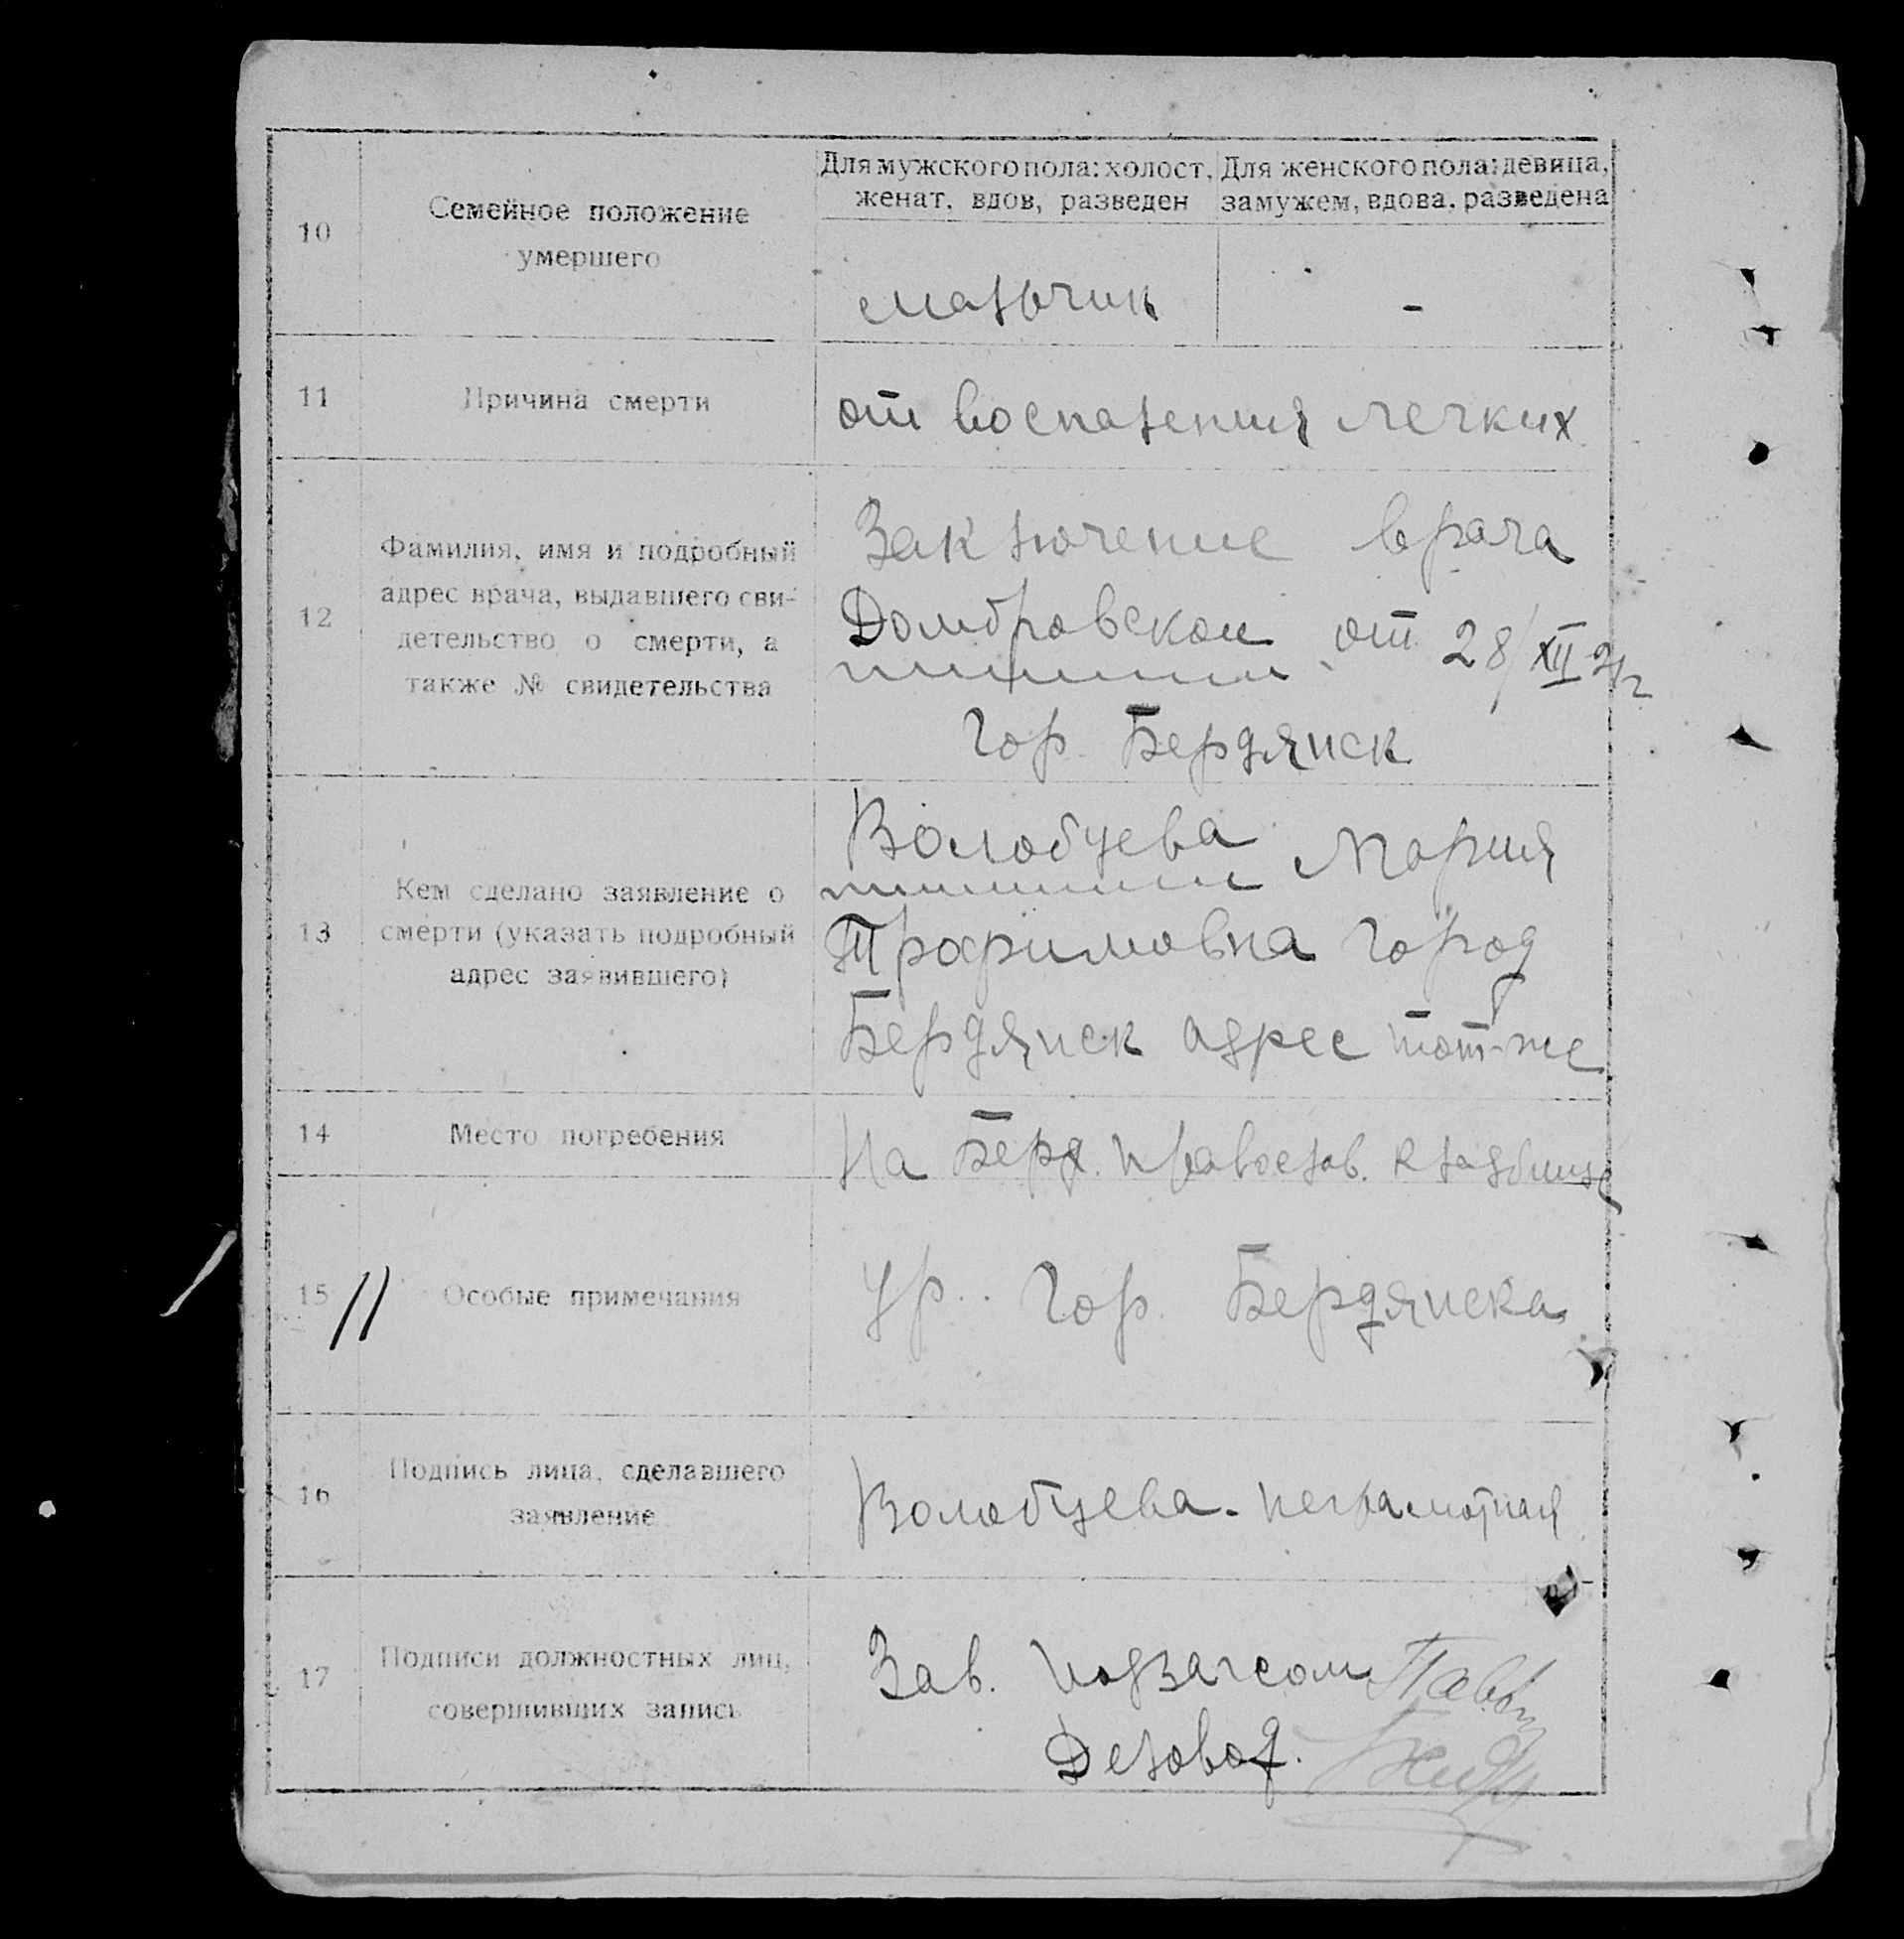 Для мужского пола: холост,
женат, вдов, разведен
Для женского пола: девица,
замужем, вдова, разведена
10
Семейное положение
умершего
мальчик
-
11
Причина смерти
от воспаления легких
12
Фамилия, имя и подробный
адрес врача, выдавшего сви-
детельство о смерти, а
также № свидетельства
Заключение врача
Домбровской от 28/XII
Гор. Бердянск
13
Кем сделано заявление о
смерти (указать подробный
адрес заявившего)
Волобуева Мария
Трофимовна город
Бердянск адрес тот-же
14
Место погребения
На Берд. православ. кладбище
15
Особые примечания
Ур. Гор. Бердянска
16
Подпись лица, сделавшего
заявление
Волобуева - неграмотная
17
Подписи должностных лиц,
совершивших запись
Зав. подзагсом
Деловод.